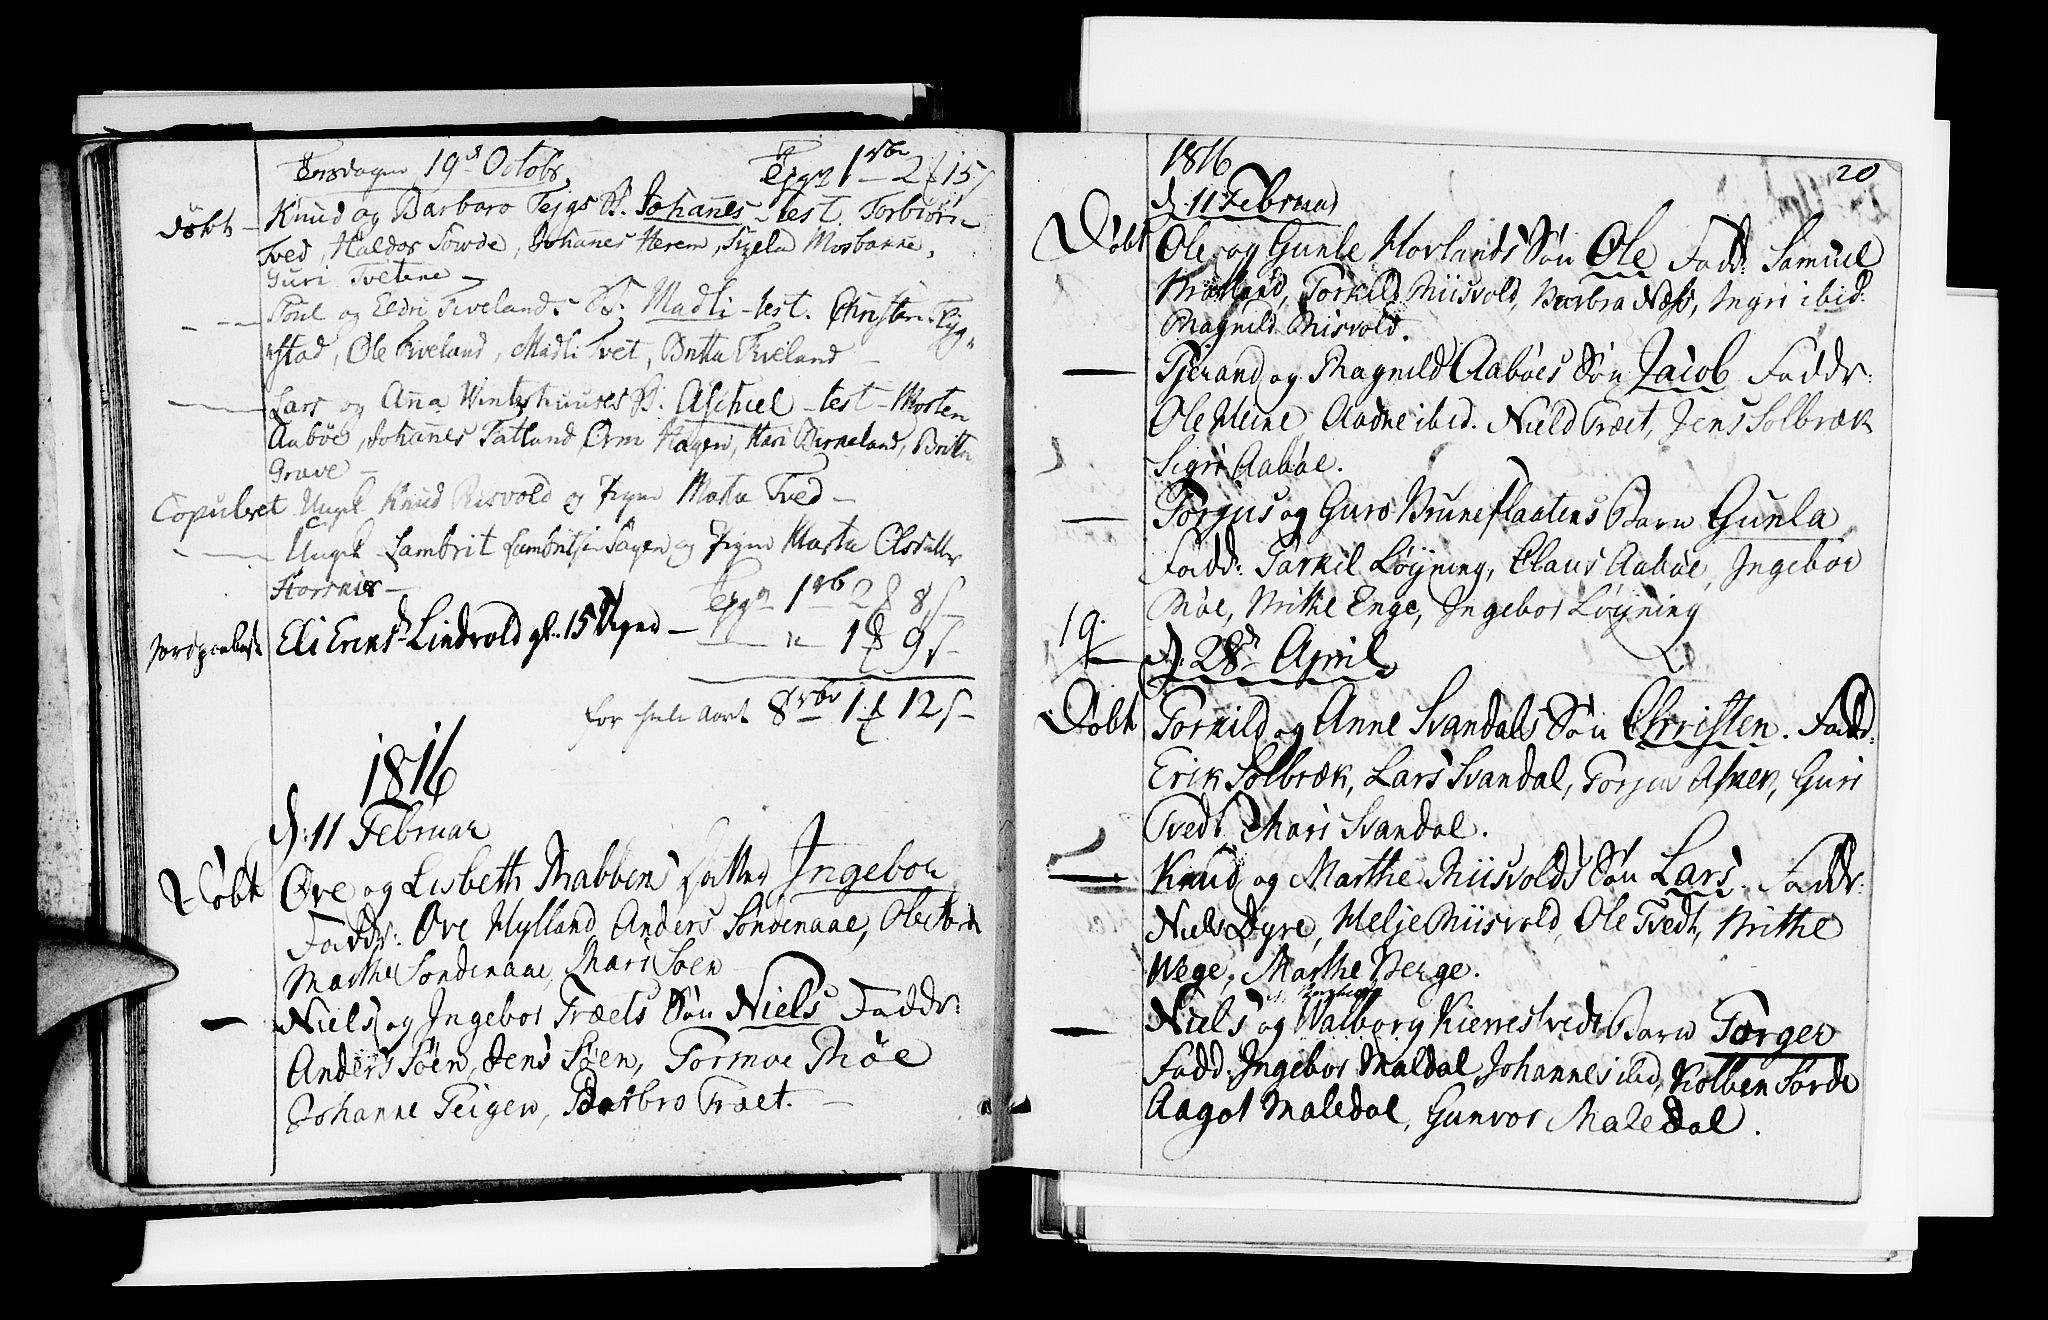 Torsdagen 19de Octobr.
Tegn 1 rbr 2 ƒ 15 s
Døbt - Knud og Barbaro Tejgs B. Johanes - test Torbiørn
Tved, Haldor Sowde, Johanes Herem, Sizela Mosbanne,
Guri Tvetene -
Poul og Eldri Tvelands B. Madli - test. Christen
stad, Ole Tveland, Madli Tvet, Britta Tveland -
Lars og Anna Winterhuuses B. Aschiel - test - Morten
Aabøe, Johanes Fatland, Orm Hagen, Kari Birkeland, Britta
Grave -
Copuleret Ungk. Knud Risvold og Pigen Marta Tved -
Ungk. Lambrit Sagen og Pigen Marta Olsdatter
Tegn 1 rb 2 ƒ 8 s -
Eli Erins D. Lindvold gl. 15 Uger - " 1 ƒ 9 s -
for hele Aaret 8 rbr 1 ƒ 12 s -
1816
d: 11 Februar
Døbt Ove og Lisbeth Rabbens Datter Ingebor
Faddr: Ove Hylland, Anders Søndenaae, Ole
Marthe Søndenaae, Mari Søen
- Niels og Ingebor Træets Søn Niels Faddr:
Anders Søen, Jens Søen, Tormoe Møe
Johanne Teigen, Barbro Træt. -
1816
20
d. 11 Februar
Døbt Ole og Gunle Hovlands Søn Ole Fadd: Samuel
Torkild Riisvold, Barbra Næss, Ingri ibid:
Magnild Risvold.
- Tjerand og Magnild Aabøes Søn Jacob Faddr:
Ole Heine Aadne ibid. Nield Træet, Jens Solbræk
Sigri Aabøe.
- Torjus og Guro Bruneflaatens Barn Gunla
Fadd: Tarkil Løyning, Claus Aabøe, Ingebor
Møe, Brithe Enge, Ingebor Løyning
19.
d. 28de April
Døbt Torkild og Anne Svandals Søn Christen. Fadd:
Erik Solbræk, Lars Svandal, Torjus Asker, Guri
Tvedt, Mari Svandal.
- Knud og Marthe Riisvolds Søn Lars. Faddr:
Niels Dyre, Helje Riisvold, Ole Tvedt, Brithe
Hege, Marthe Berge.
- Niels og Walborg Kierrestvedt Barn Torger
Fadd. Ingebor Maldal Johannes ibid, Kolben Førde
Aagot Maledal, Gunvor Maledal.